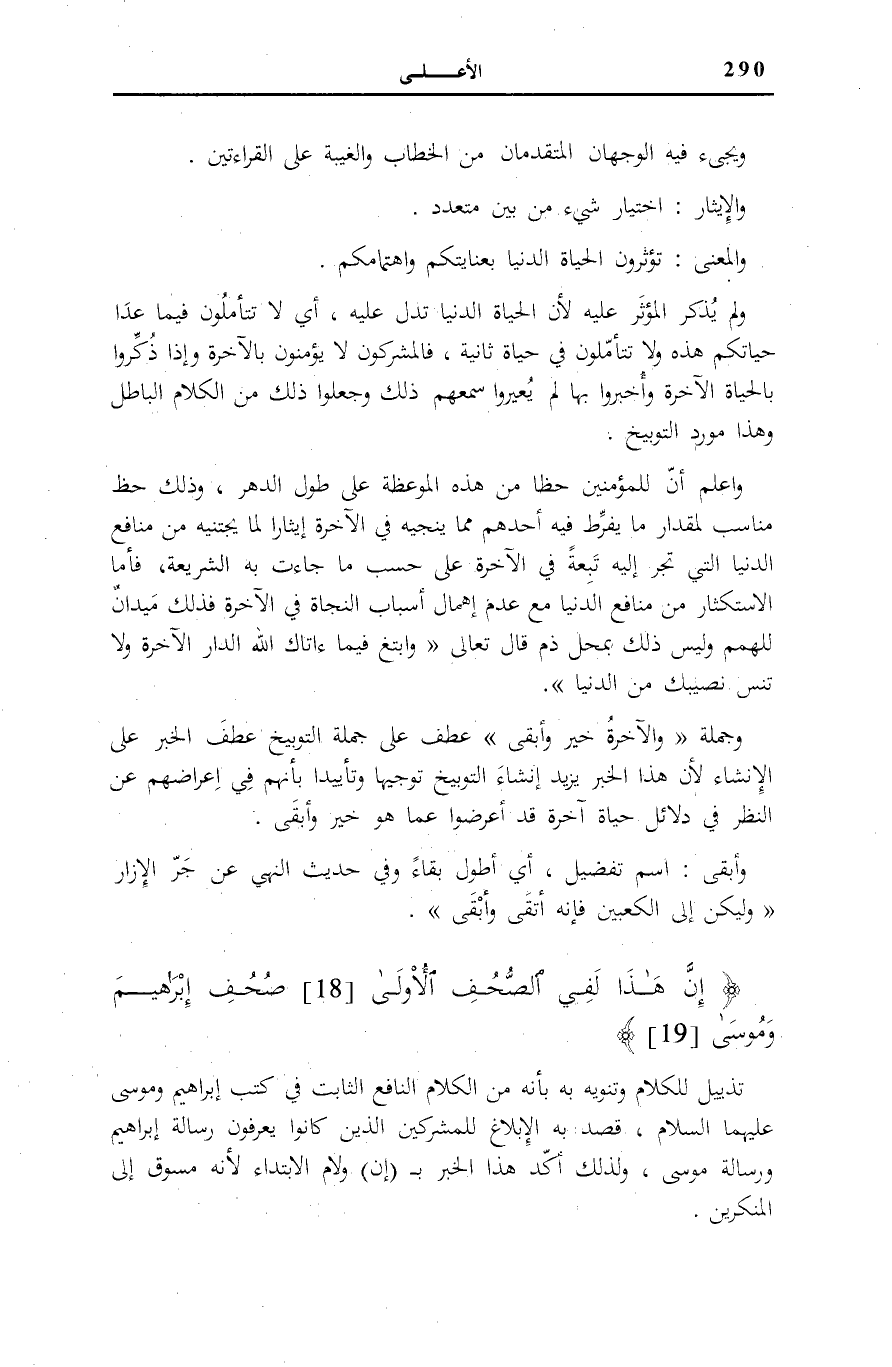 290
الأعـــلـى
ويجىء فيه الوجهان المتقدمان من الخطاب والغيبة على القراءتين .
والإيثار : اختيار شيء من بين متعدد .
والمعنى : تؤثرون الحياة الدنيا بعنايتكم واهتمامكم .
ولم يُذكر المؤثَر عليه لأن الحياة الدنيا تدل عليه ، أي لا تتأملُون فيما عدَا
حياتكم هذه ولا تتأمّلون في حياة ثانية ، فالمشركون لا يؤمنون بالآخرة وإذا ذُكِّروا
بالحياة الآخرة وأُخبروا بها لم يُعيروا سمعهم ذلك وجعلوا ذلك من الكلام الباطل
وهذا مورد التوبيخ .
واعلم أنّ للمؤمنين حظا من هذه الموعظة على طول الدهر ، وذلك حظ
مناسب لمقدار ما يفرِّط فيه أحدهم مما ينجيه في الآخرة إيثارا لما يجتنيه من منافع
الدنيا التي تجر إليه تَبِعةً في الآخرة على حسب ما جاءت به الشريعة، فأما
الاستكثار من منافع الدنيا مع عدم إهمال أسباب النجاة في الآخرة فذلك مَيدانٌ
للهمم وليس ذلك بمحل ذم قال تعالى « وابتغ فيما ءاتاك الله الدار الآخرة ولا
تنس نصيبك من الدنيا ».
وجملة « والآخرةُ خير وأبقى » عطف على جملة التوبيخ عطفَ الخبر على
الإنشاء لأن هذا الخبر يزيد إنشاءَ التوبيخ توجيها وتأييدا بأنهم فِي إعراضهم عن
النظر في دلائل حياة آخرة قد أعرضوا عما هو خير وأبقَى .
وأبقى : اسم تفضيل ، أي أطول بقاءً وفي حديث النهي عن جَرّ الإزار
« وليكن إلى الكعبين فإنه أتقَى وأبْقَى » .
﴿ إِنَّ هَـٰذَا لَفِـي ٱلصُّحُـفِ ٱلْأُولَـىٰ [18] صُحُـفِ إِبْرَٰهِيـــمَ
وَمُوسَىٰ [19] ﴾
تذييل للكلام وتنويه به بأنه من الكلام النافع الثابت في كتب إبراهيم وموسى
عليهما السلام ، قصد به الإبلاغ للمشركين الذين كانوا يعرفون رسالة إبراهيم
ورسالة موسى ، ولذلك أكّد هذا الخبر بـ (إن) ولام الابتداء لأنه مسوق إلى
المنكرين .